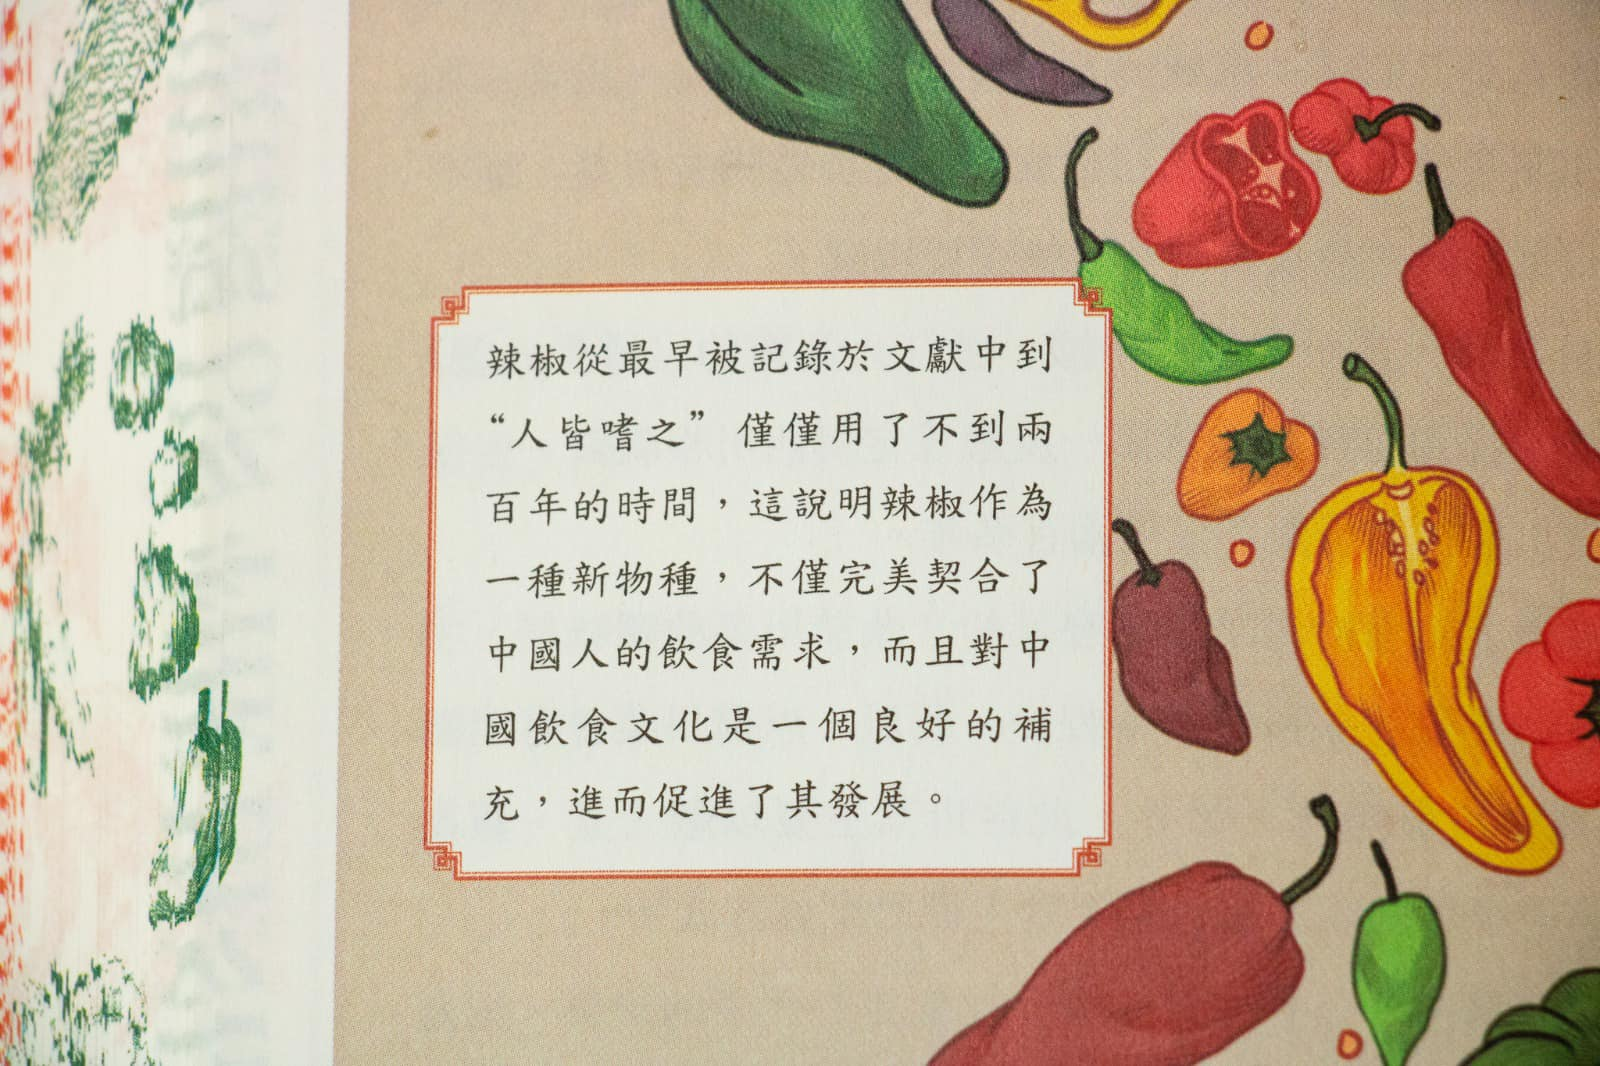 辣椒從最早被記錄於文獻中到
“人皆嗜之”僅僅用了不到兩
百年的時間，這說明辣椒作為
一種新物種，不僅完美契合了
中國人的飲食需求，而且對中
國飲食文化是一個良好的補
充，進而促進了其發展。